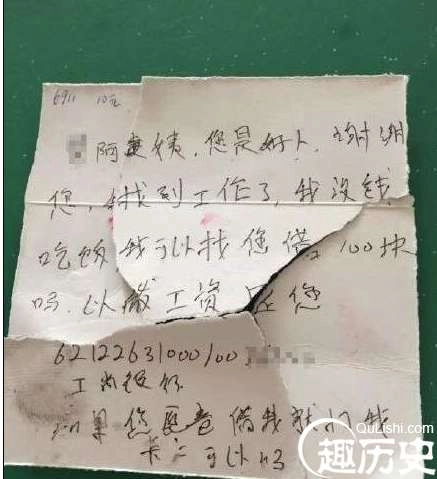 6911 10元
阿姨,您是好人,谢谢
您,我找到工作了,我没钱
吃饭我可以找您借100块
吗.以工资还您
62122631000100
工商银行
如果您愿意借我就打我
卡上可以吗
QuLishi.com
趣历史